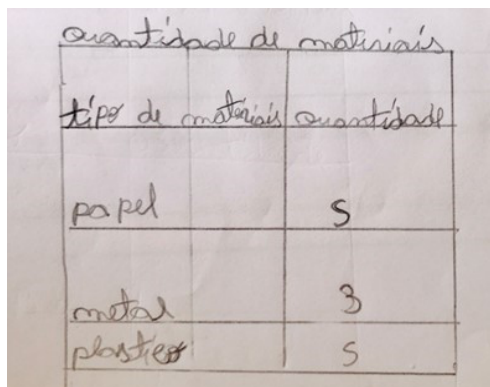 quantidade de materiais
tipo de materiais quantidade
papel 5
metal 3
plastico 5